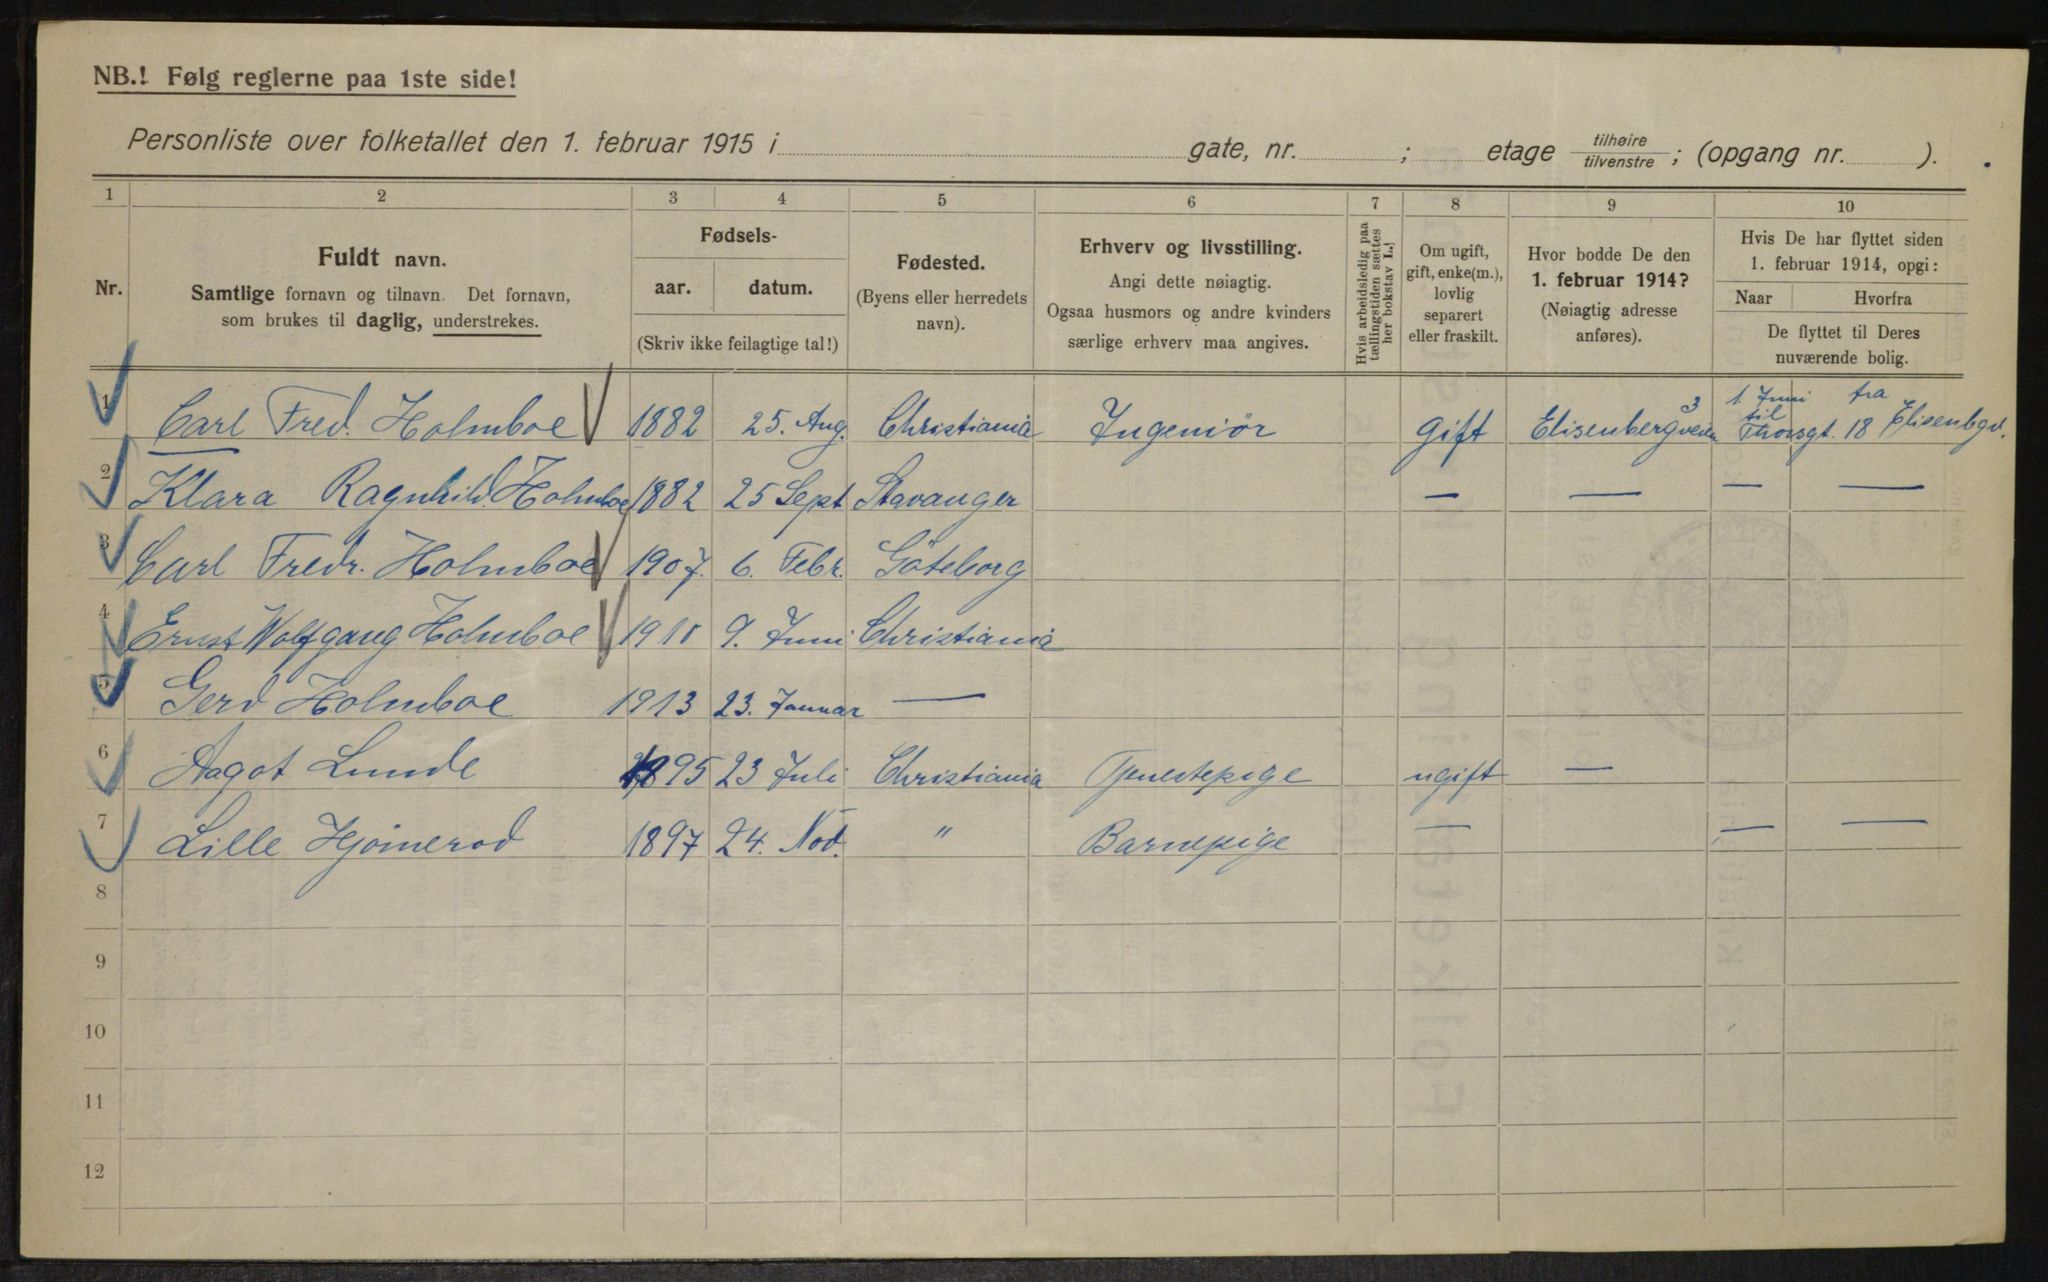 NB.! Følg reglerne paa 1ste side!
Personliste over folketallet den 1. februar 1915 i gate, nr. ; etage tilhøire/tilvenstre ; (opgang nr. ).
1 2 3 4 5 6 7 8 9 10
Nr.
Fuldt navn.
Samtlige fornavn og tilnavn. Det fornavn,
som brukes til daglig, understrekes.
Fødsels-
aar. datum.
(Skriv ikke feilagtige tal!)
Fødested.
(Byens eller herredets
navn).
Erhverv og livsstilling.
Angi dette nøiagtig.
Ogsaa husmors og andre kvinders
særlige erhverv maa angives.
Hvis arbeidsledig paa
tællingstiden sættes
her bokstav L.!
Om ugift,
gift, enke(m.),
lovlig
separert
eller fraskilt.
Hvor bodde De den
1. februar 1914?
(Nøiagtig adresse
anføres).
Hvis De har flyttet siden
1. februar 1914, opgi:
Naar Hvorfra
De flyttet til Deres
nuværende bolig.
1 Carl Fred. Holmboe 1882 25. Aug. Christiania Ingeniör gift Elisenbergveien 3 1. Juni til Thorsgt. 18 fra Elisenbgv.
2 Klara Ragnhild Holmboe 1882 25 Sept Stavanger — — — —
3 Carl Fredr. Holmboe 1907. 6. Febr. Göteborg
4 Ernst Wolfgang Holmboe 1910 9. Juni Christiania
5 Gerd Holmboe 1913 23. Januar —
6 Aagot Lunde 1895 23 Juli Christiania Tjenestepige ugift —
7 Lille 1897 24. Nov. " Barnepige — — —
8
9
10
11
12